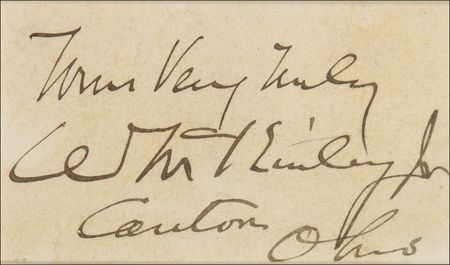 Yours Very Truly
Wm McKinley Jr
Canton
Ohio